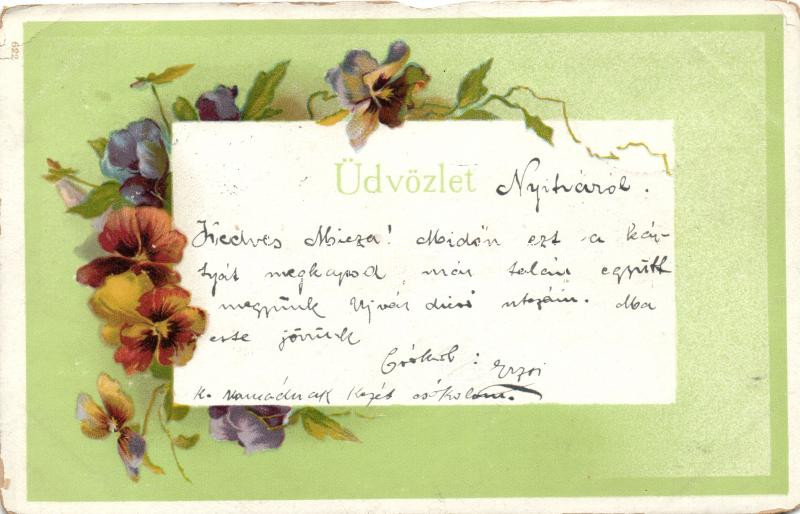 622
Üdvözlet Nyitráról.
Kedves Micza! Midőn ezt a kár-
tyát megkapod már talán együtt
megyünk Ujvár dicső utczáin. Ma
este jövünk
Csókol: Erzsi
K. Mamádnak kezét csókolom.